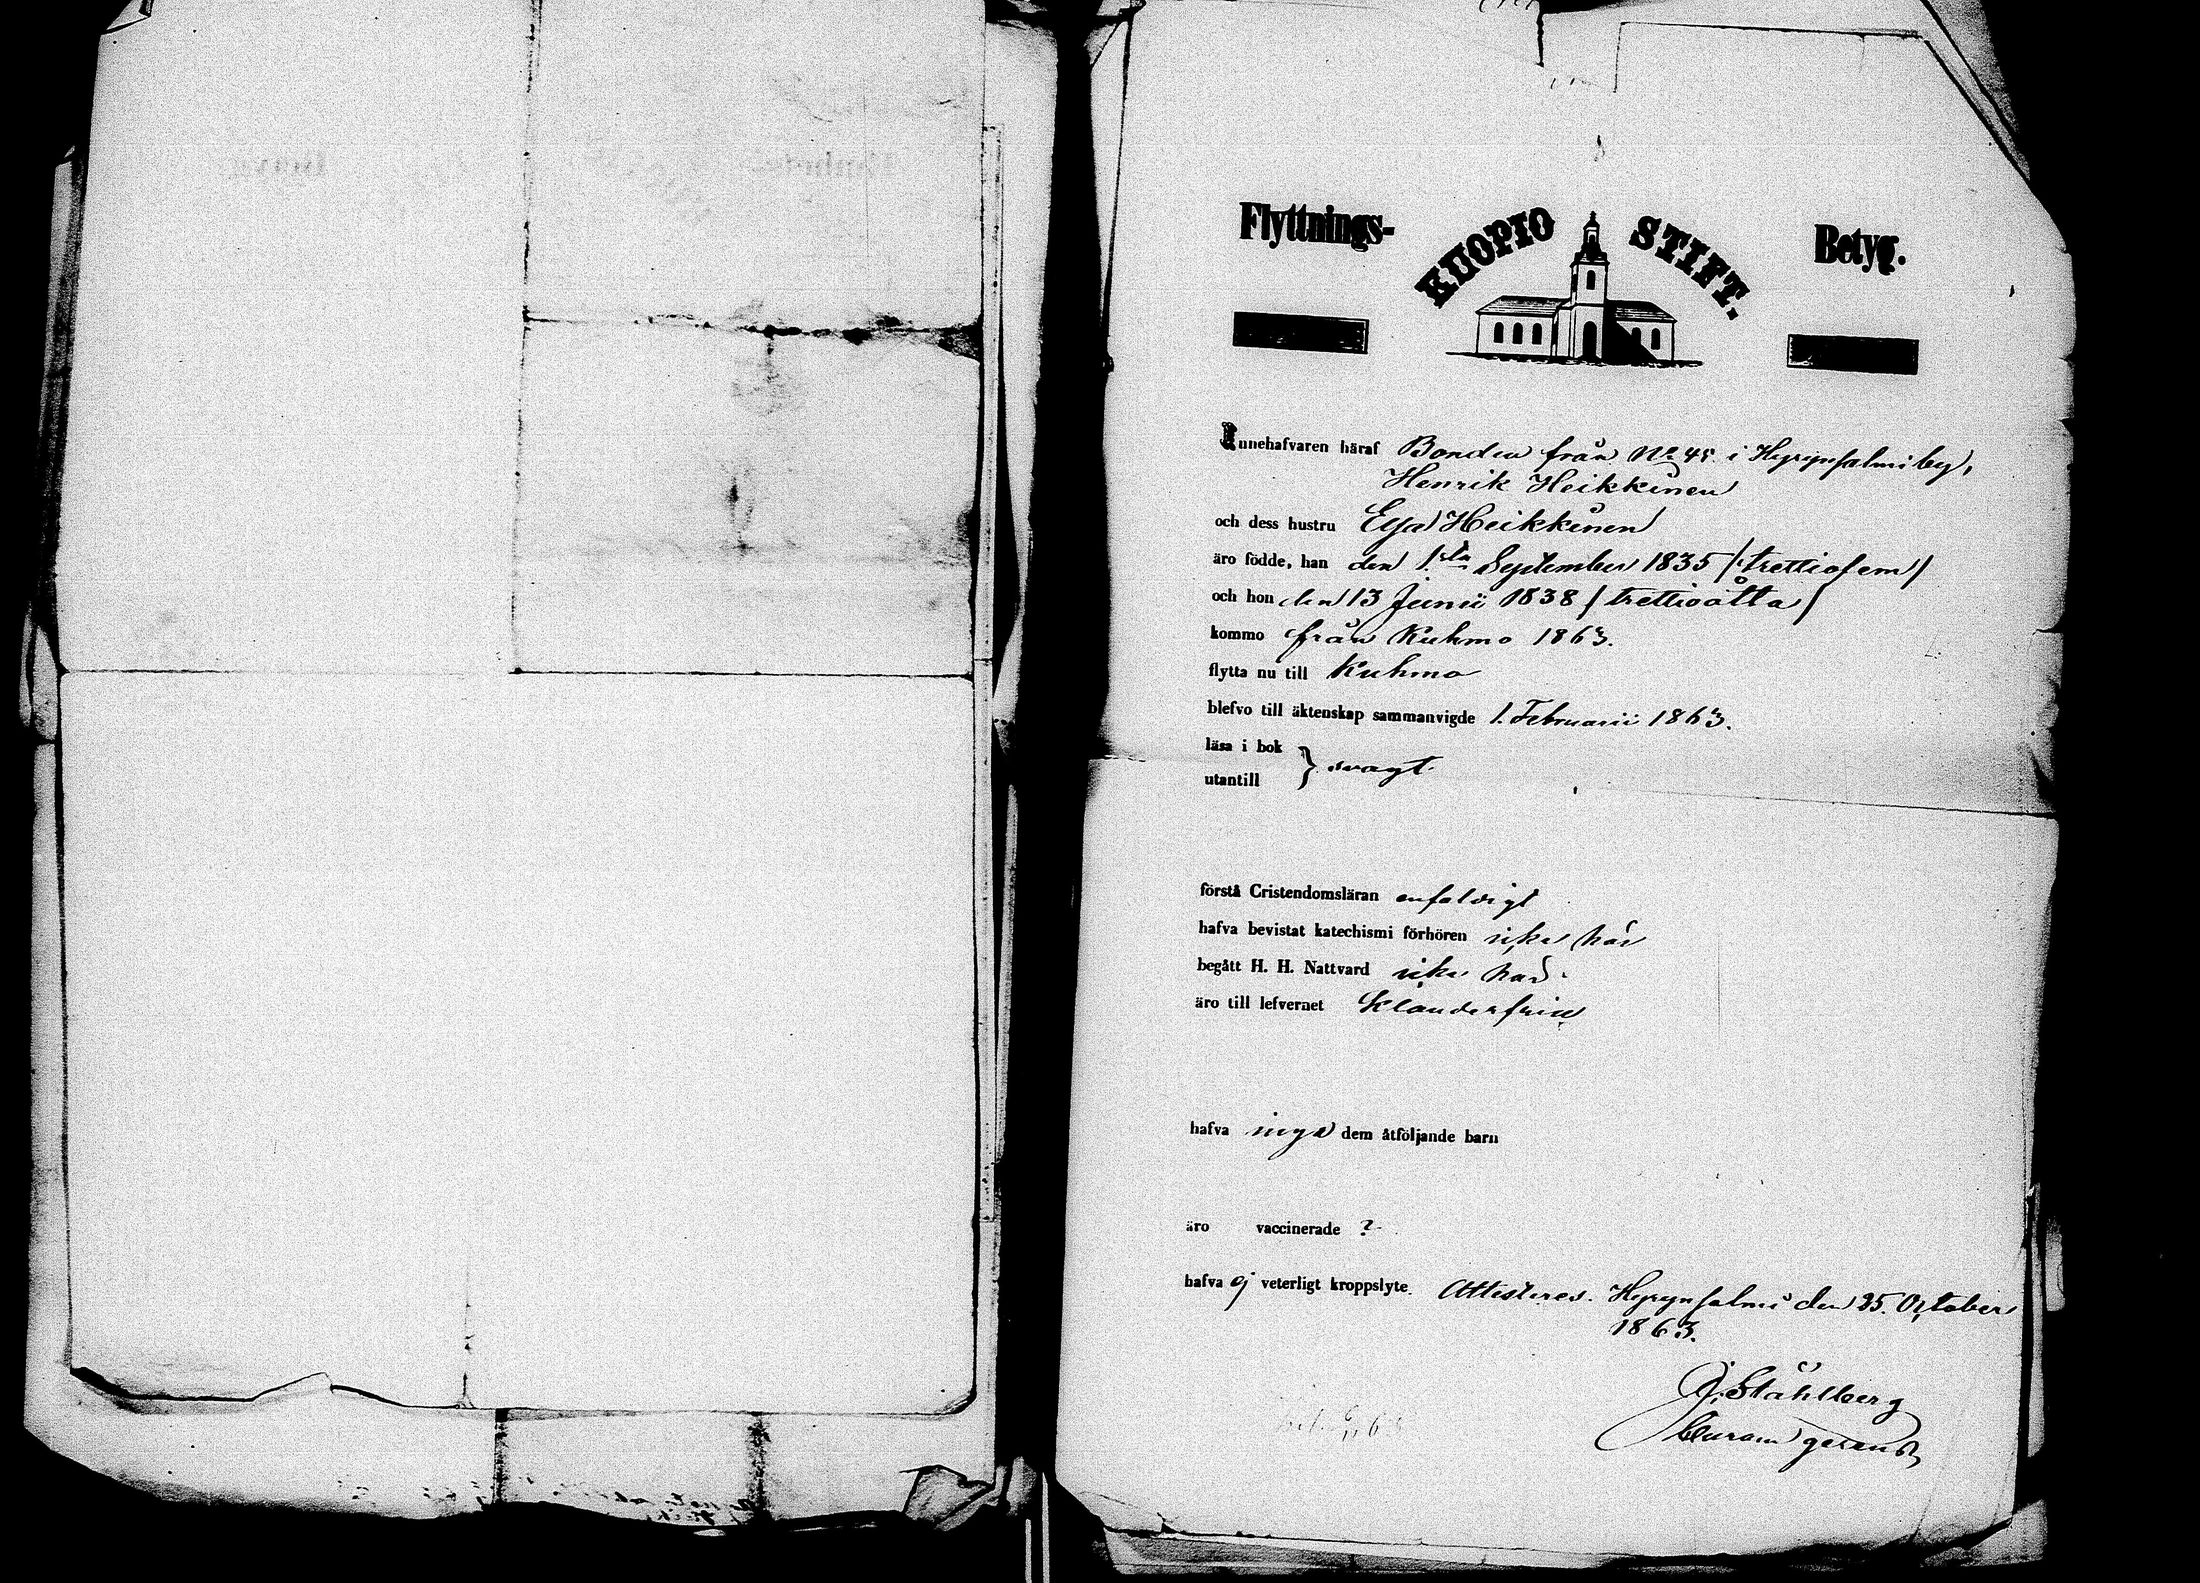 Flyttnings- KUOPIO STIFT. Betyg.
Innehafvaren häraf Bonden från No 45 i Hyrynsalmi by,
Henrik Heikkinen
och dess hustru Eva Heikkinen
äro födde, han den 1sta September 1835 /trettiofem/
och hon den 13 Junii 1838 /trettioåtta/
kommo från Kuhmo 1863.
flytta nu till Kuhmo
blefvo till äktenskap sammanvigde 1. Februarii 1863.
läsa i bok
utantill } svagt.
förstå Cristendomsläran enfaldigt
hafva bevistat katechismi förhören icke här
begått H. H. Nattvard icke här.
äro till lefvernet klanderfria
hafva inga dem åtföljande barn
äro vaccinerade ?
hafva ej veterligt kroppslyte. Attesteres. Hyrynsalmi den 25. October
1863.
Ståhlberg
Curam gerens